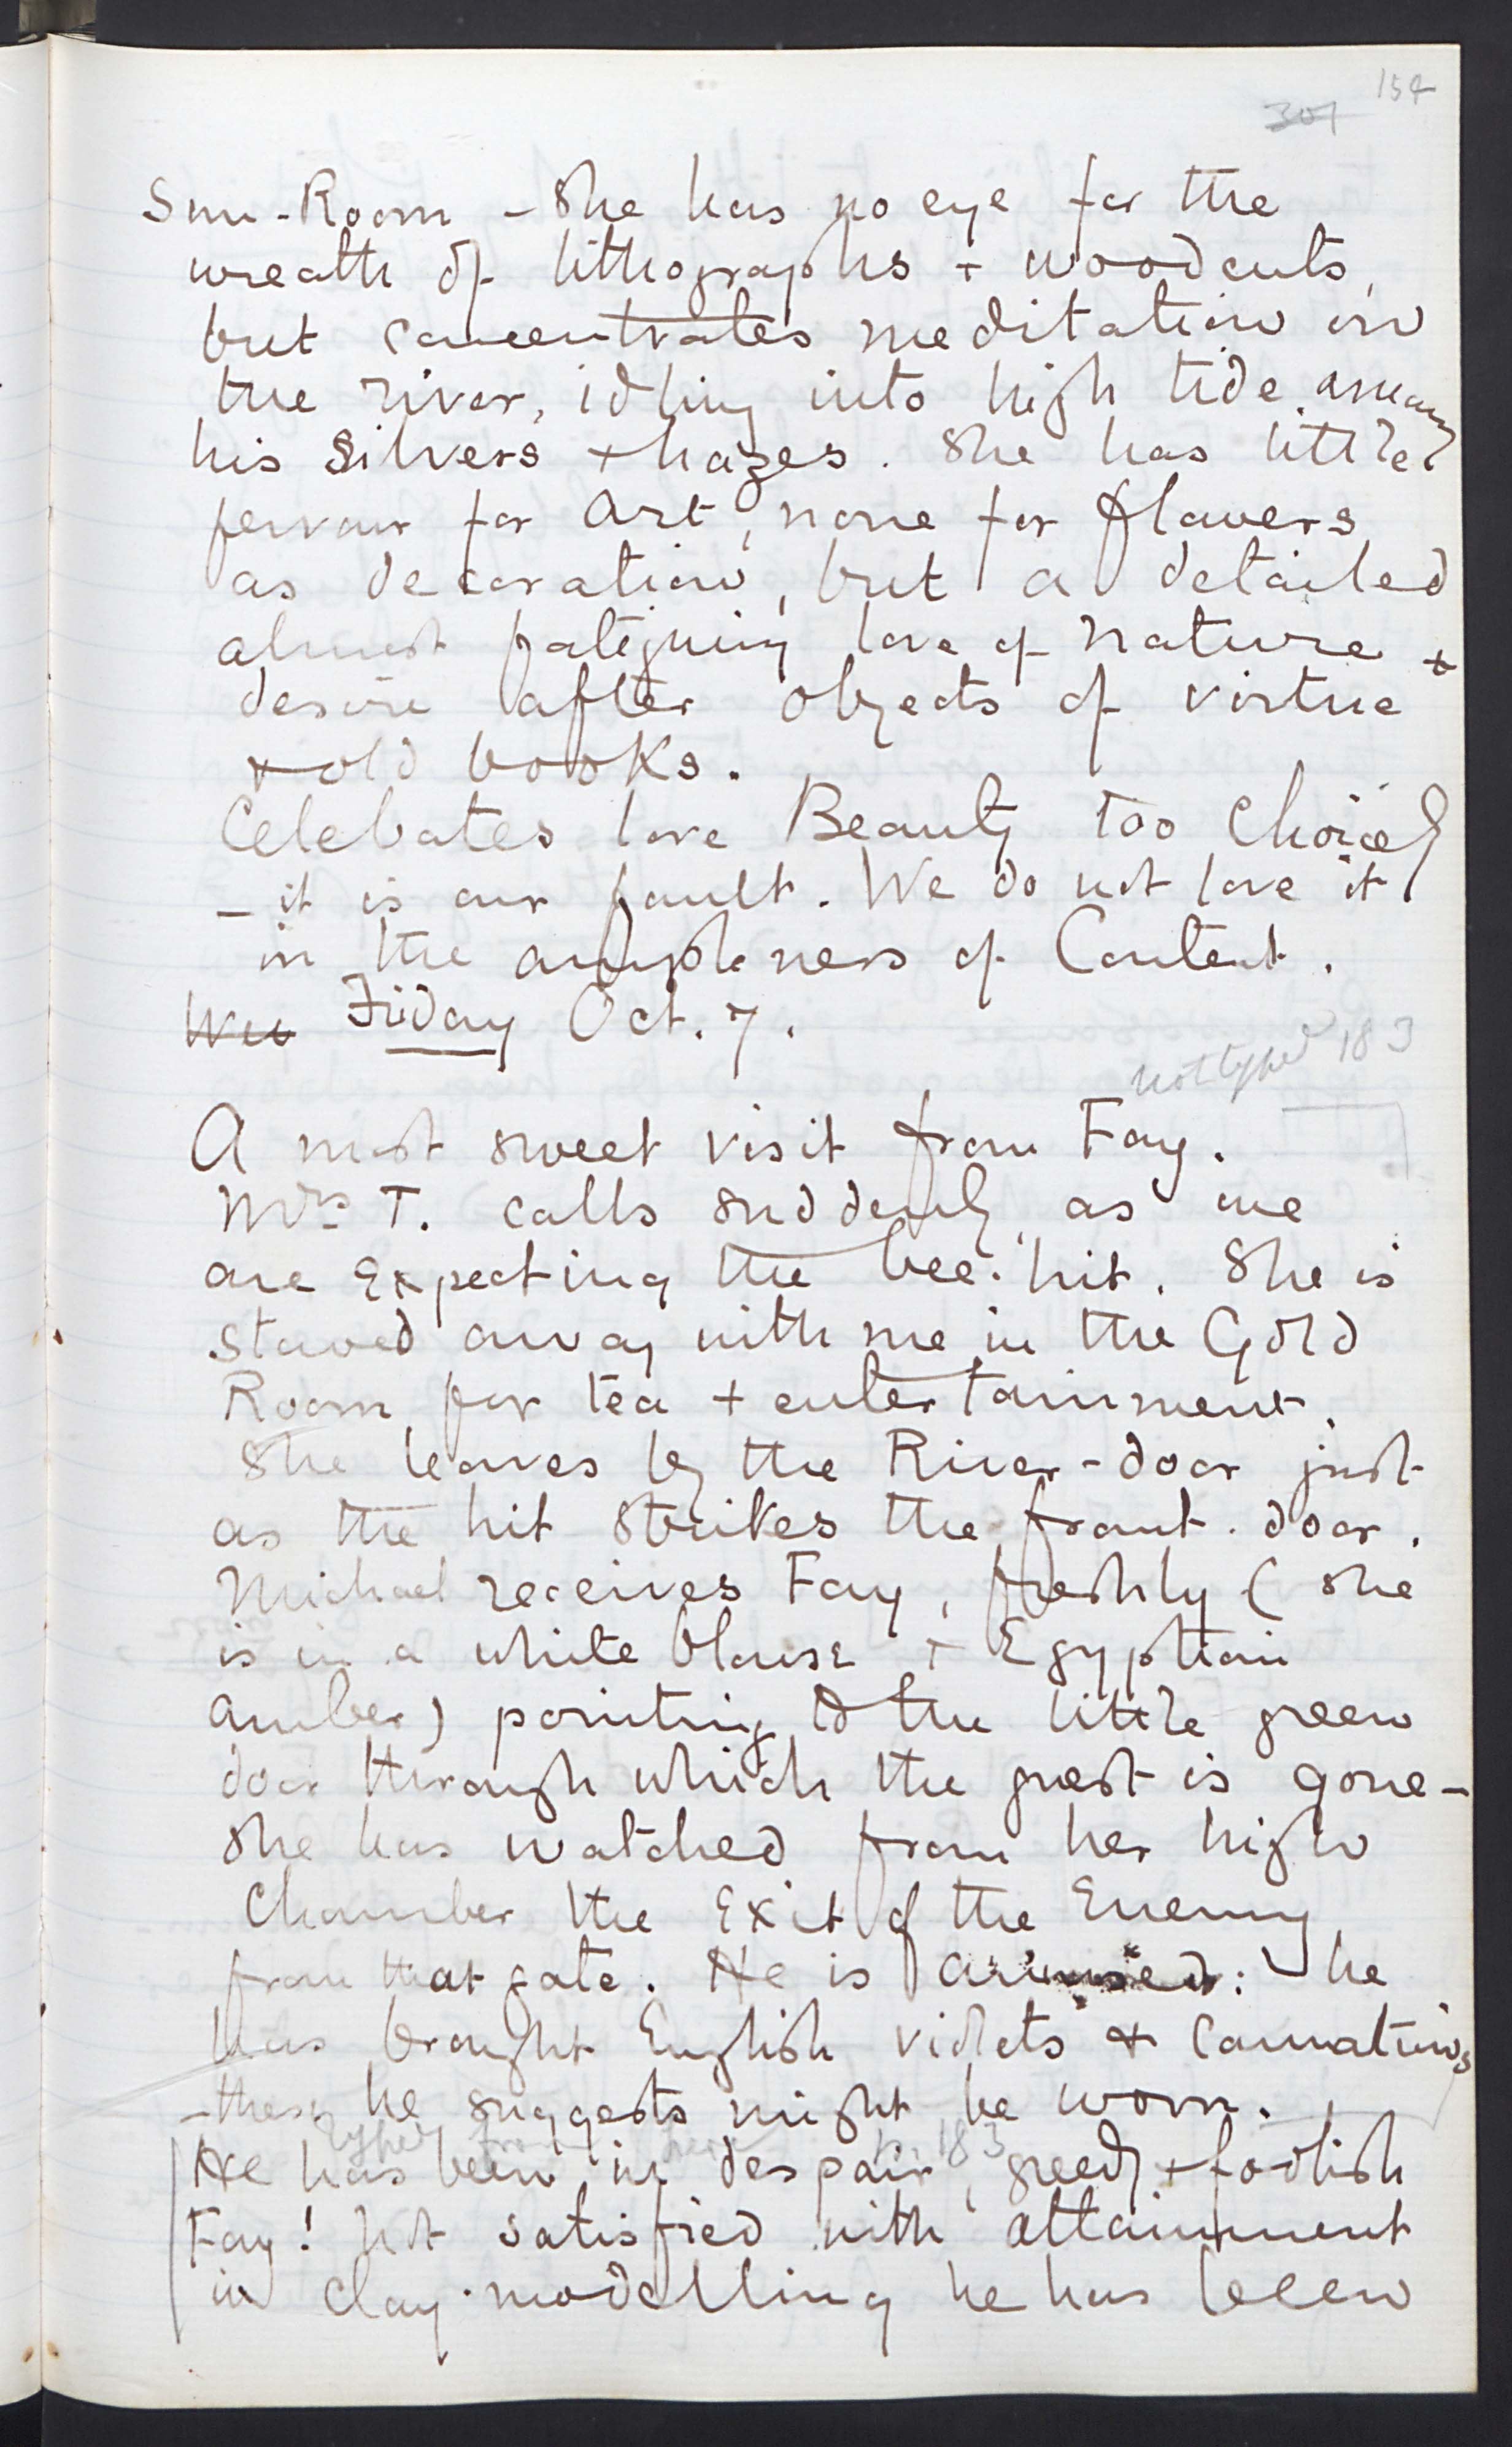 154
307
Sun-Room - She has no eye for the
wreath of lithographs + woodcuts,
but concentrates meditation on
the river, idling into high tide among
his silvers + hazes. She has little
fervour for Art, none for flowers
as decoration, but a detailed
almost fatiguing love of nature +
desire after objects of virtue
+ old books.
Celebates love Beauty too choicely
- it is our fault. We do not love it
in the ampleness of Content.
We Friday Oct. 7.
not typed 183
A most sweet visit from Fay.
Mrs T. calls suddenly as we
are expecting the bee-hit. She is
stowed away with me in the Gold
Room for tea + entertainment.
She leaves by the River-door just
as the hit strikes the front-door.
Michael receives Fay, freshly (she
is in a white blouse + Egyptian
amber) pointing to the little green
door through which the guest is gone -
She has watched from her high
Chamber the Exit of the Enemy
from that gate. He is amused: he
has brought English violets & carnations
- these, he suggests might be worn.
typed from here p. 183
He has been in despair, greedy + foolish
Fay! Not satisfied with attainment
in clay-modelling he has been